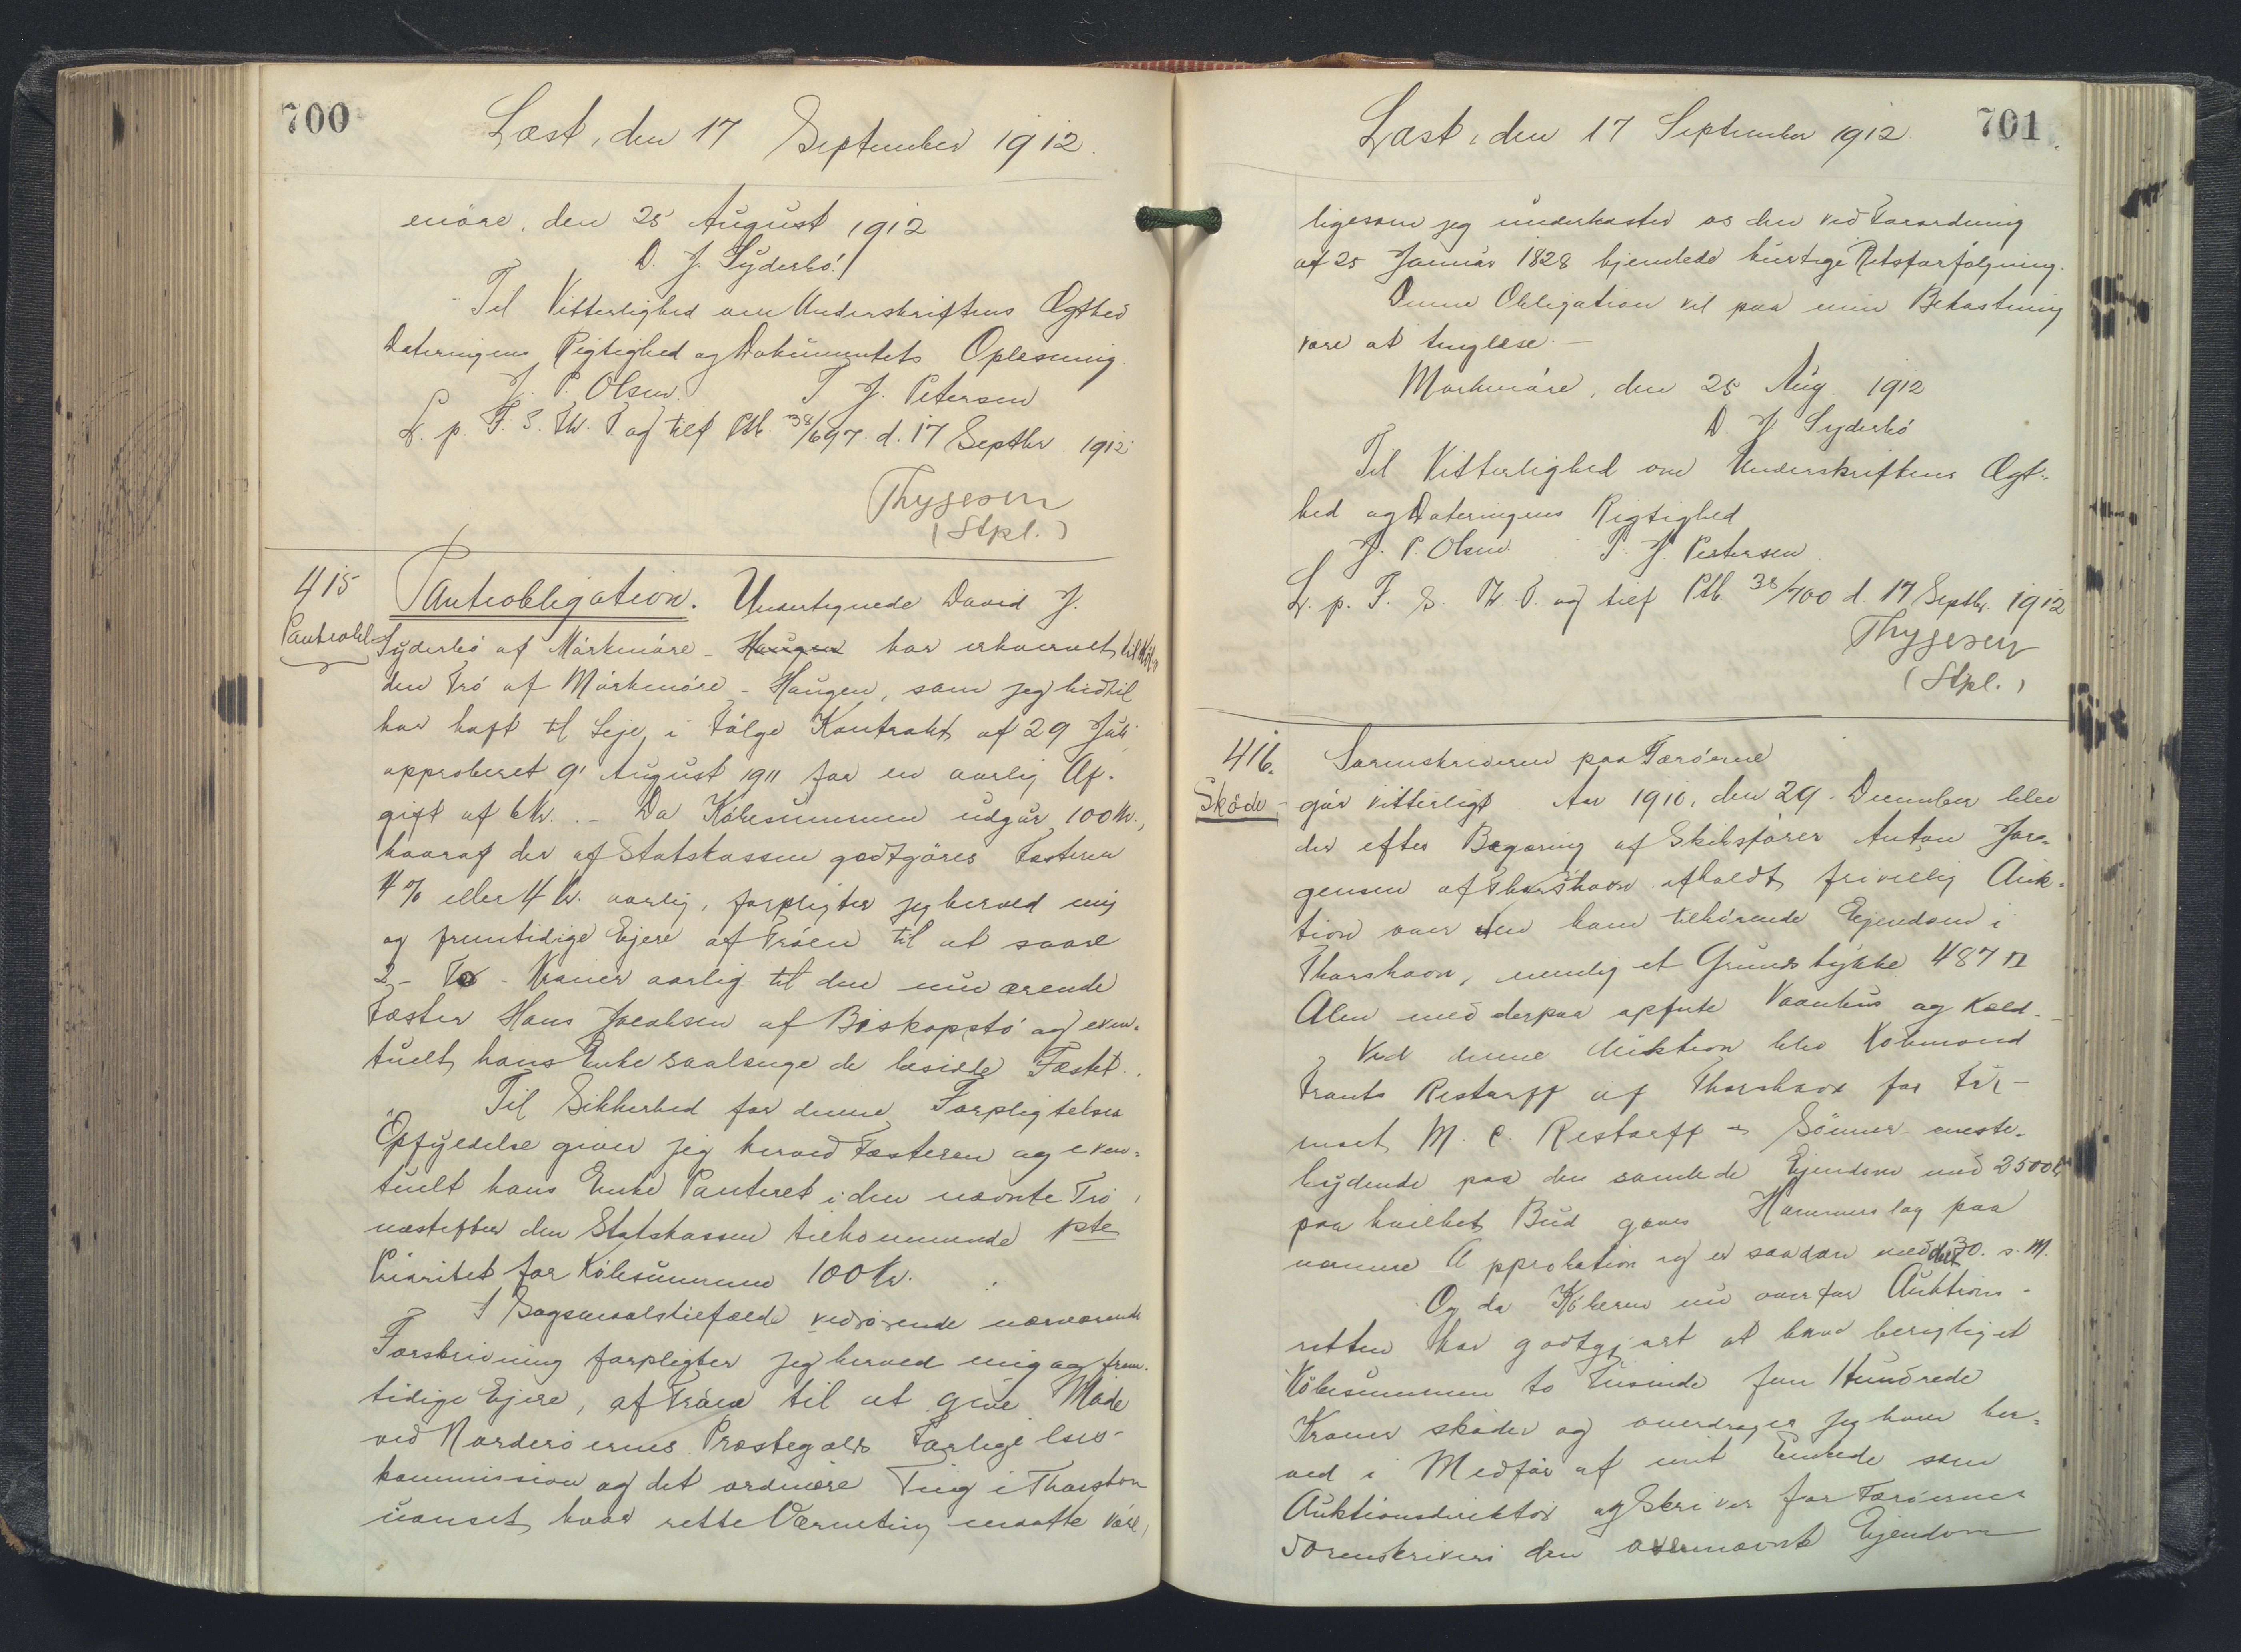 700
Læst, den 17 September 1912.
enóre, den 25 August 1912
D. J. Syderbó!
Til Vitterlighed om Underskriftens Ægthed
Dateringens Rigtighed og Dokumentets Oplæsning.
J. P. Olsen. T J. Petersen
L. p. F. S. Th. P. og tilf Ptb. 38/697 d. 17 Septbr. 1912
Thygesen
(Stpl.)
415
Pantobl
Pantobligation. Undertegnede David J.
Syderbó af Márkenóre - Haugen har erhvervet til
den Tró af Márkenóre - Haugen, som jeg hidtil
har haft til Leje i Følge Kontrakt af 29 Juli
approberet 9' August 1911 for en aarlig Af-
gift af 6 Kr. - Da Købesummen udgør 100 Kr.,
hvoraf der af Statskassen godtgöres Fæsteren
4 % eller 4 Kr. aarlig, forpligter jeg herved mig
og fremtidige Ejere af Tróen til at svare
2 - To - Kroner aarlig til den nuværende
Fæster Hans Jacobsen af Biskopstó og even-
tuelt hans Enke saalænge de besidde Fæstet.
Til Sikkerhed for denne Forpligtelses
Opfyldelse giver jeg herved Fæsteren og even-
tuelt hans Enke Panteret i den nævnte Tró,
næstefter den Statskassen tilkommende 1ste
Prioritet for Købesummen 100 Kr.
I Sagsmaalstilfælde vedrörende nærværende
Forskrivning forpligter jeg herved mig og frem-
tidige Ejere, af Tróen til at give Möde
ved Norderöernes Præstegælds Forligelses-
kommission og det ordinære Ting i Thorshavn
uanset, hvor rette Værneting maatte være,
Læst, den 17 September 1912.
701
ligesom jeg underkaster os den ved Forordning
af 25 Januar 1828 hjemlede hurtige Retsforfølgning.
Denne Obligation vil paa min Bekostning
være at tinglæse. -
Márkenóre, den 25 Aug. 1912
D. J Syderbó
Til Vitterlighed om Underskriftens Ægt-
hed og Dateringens Rigtighed
J. P. Olsen. T. J. Petersen.
L. p. F. S. Th. P. og tilf Ptb. 38/700 d. 17 Septbr. 1912
Thygesen
(Stpl.)
416.
Sköde -
Sorenskriveren paa Færöerne
gör vitterligt. Aar 1910, den 29. December blev
der efter Begæring af Skibsfører Anton Jör-
gensen af Thorshavn afholdt frivillig Auk-
tion over den ham tilhörende Ejendom i
Thorshavn, nemlig et Grundstykke 487 □
Alen med derpaa opförte Vaanhus og Kæld-
Ved denne Auktion blev Købmand
Frants Restorff af Thorshavn for Fir-
maet M. C. Restorff & Sönner meste-
bydende paa den samlede Ejendom med 2500 Kr
paa hvilket Bud gaves Hammerslag paa
nærmere Approbation og er saadan meddelt 30. s. M.
Og da Köberen nu overfor Auktions-
retten har godtgjort at have berigtiget
Købesummen to Tusinde fem Hundrede
Kroner sköder og overdrager jeg ham her-
ved i Medfør af mit Embede som
Auktionsdirektör og Skriver for Færöernes
Sorenskriveri den overnævnte Ejendom